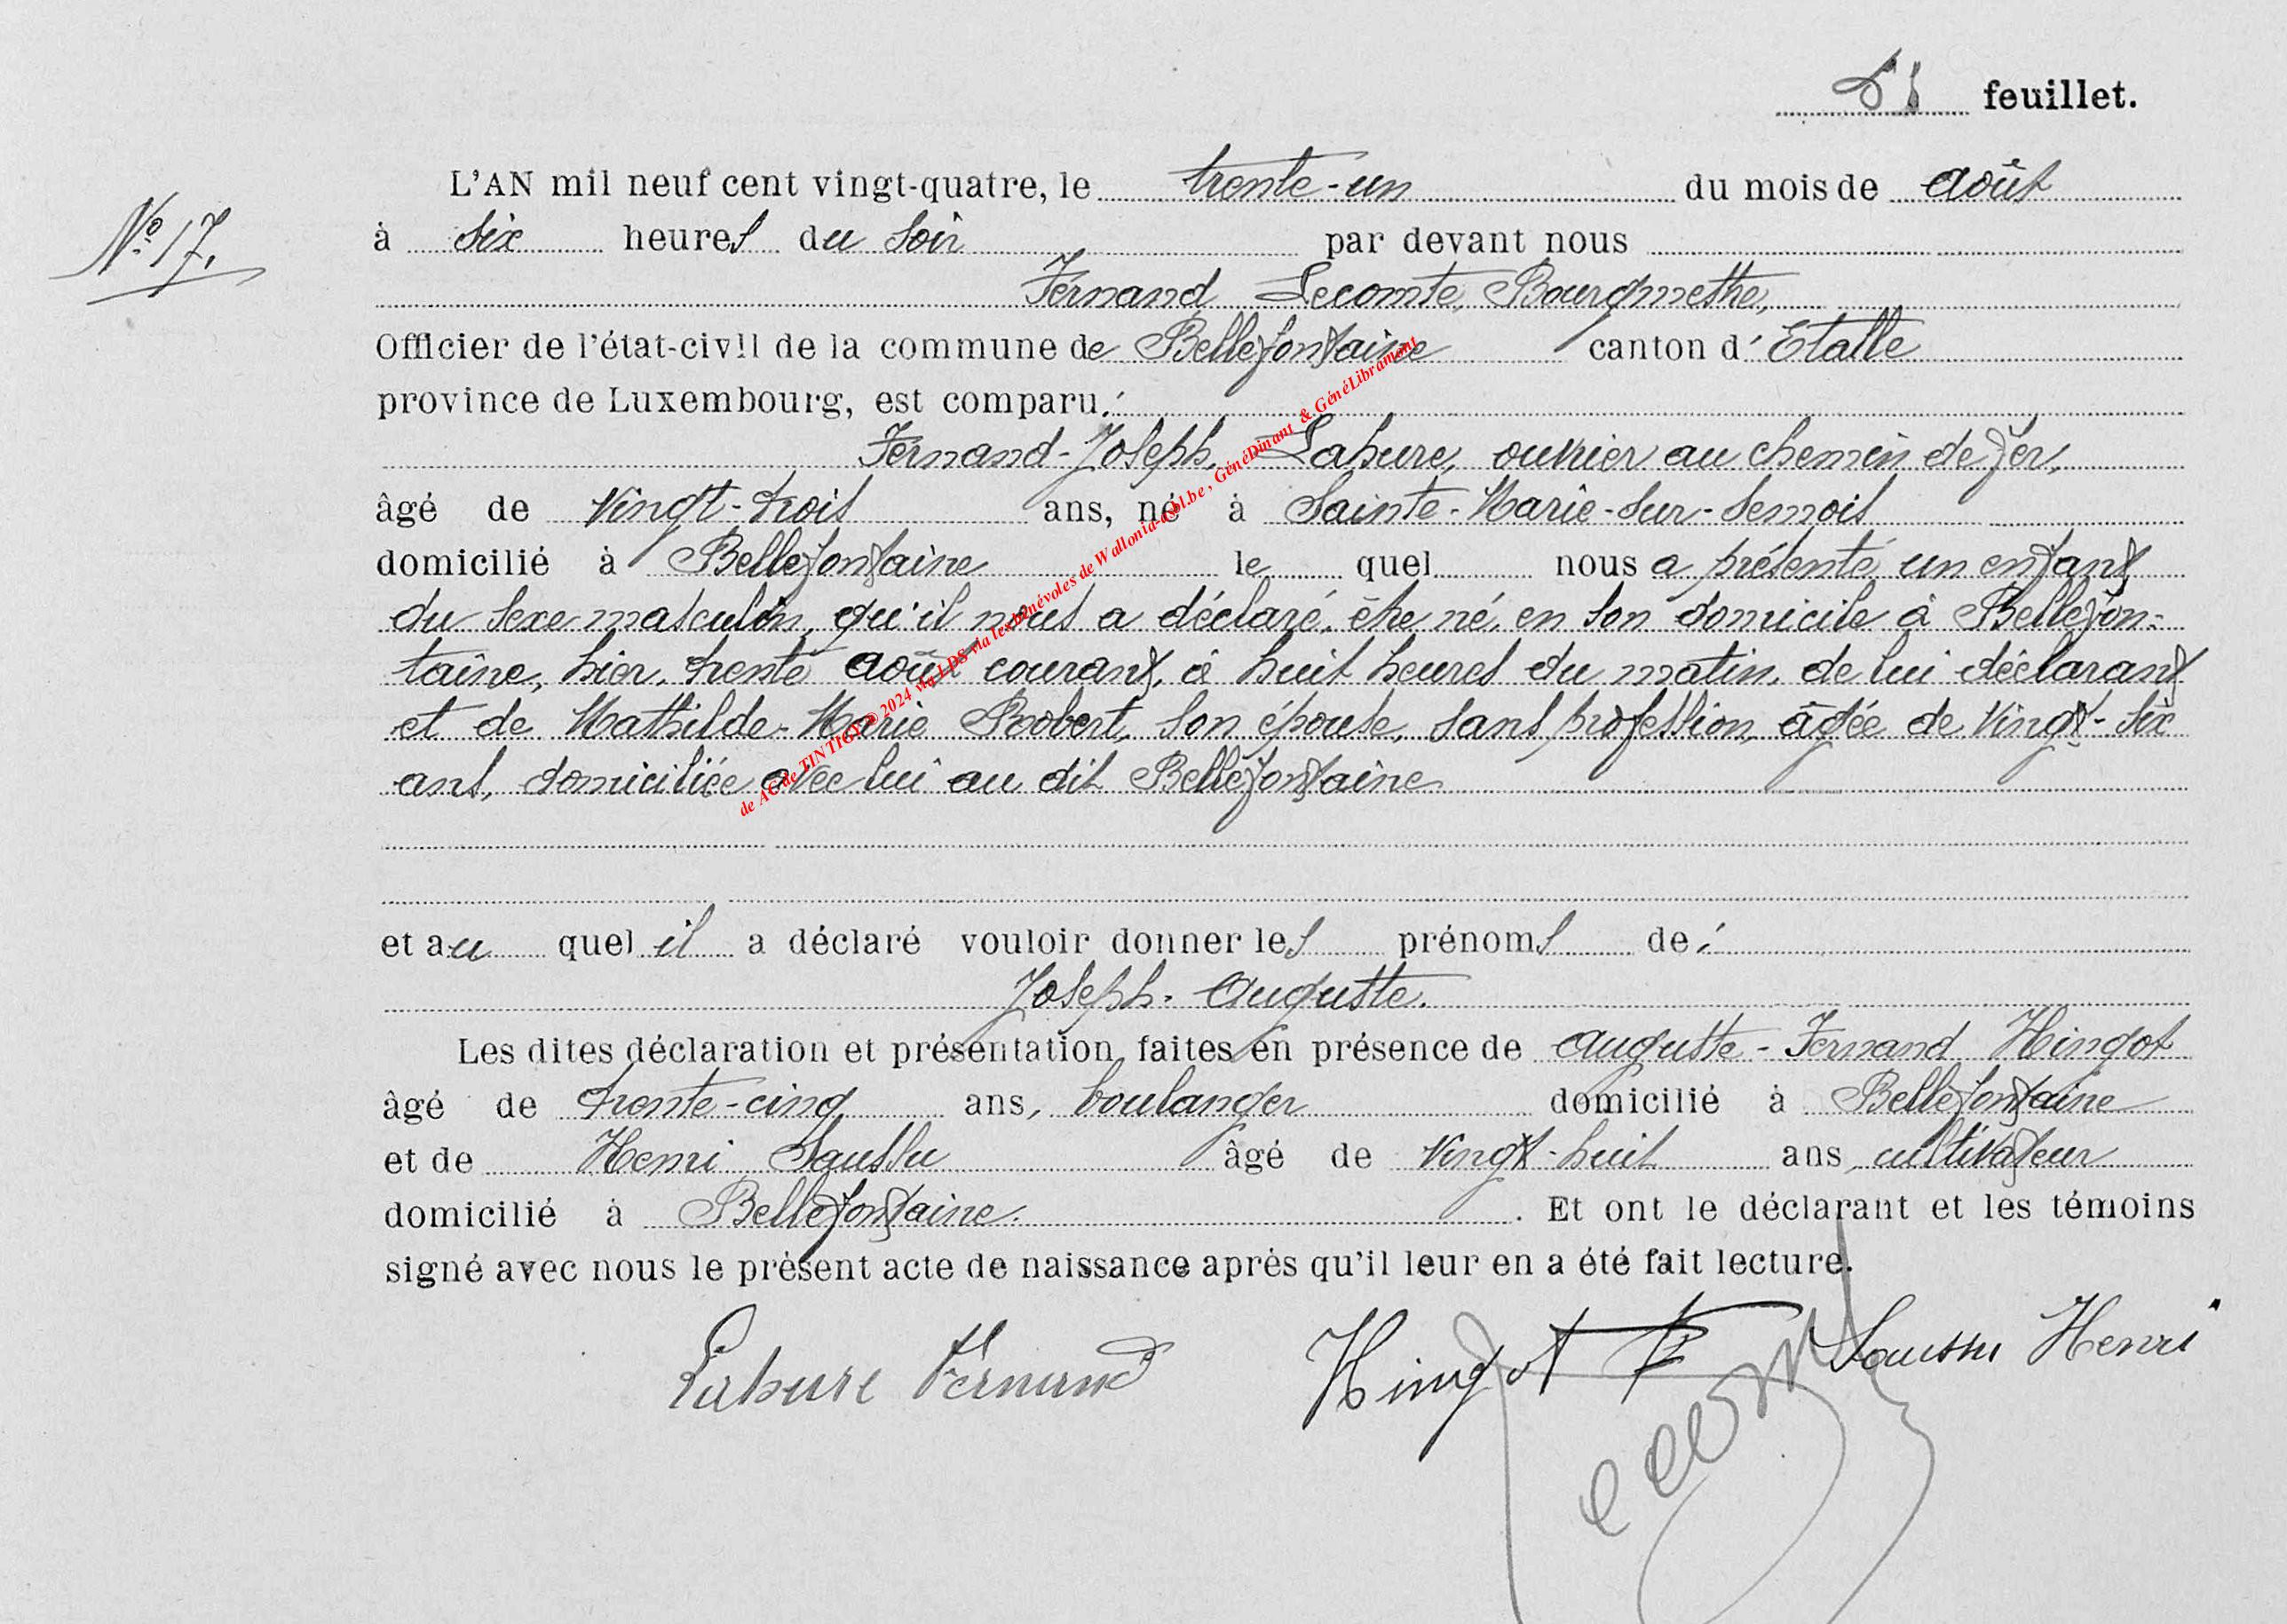 feuillet.
L'AN mil neuf cent vingt-quatre, le trente-un du mois de août
N° 17.
à six heures du soir par devant nous
Fernand Lecomte, Bourgmestre,
Officier de l'état-civil de la commune de Bellefontaine canton d'Etalle
province de Luxembourg, est comparu:
Fernand-Joseph Lahure, ouvrier au chemin de fer,
âgé de vingt-trois ans, né à Sainte-Marie-sur-Semois
domicilié à Bellefontaine le quel nous a présenté un enfant
du sexe masculin, qu'il nous a déclaré être né, en son domicile à Bellefon-
taine, hier, trente août courant, à huit heures du matin, de lui déclarant
et de Mathilde-Marie Robert, son épouse, sans profession, âgée de vingt-six
ans, domiciliée avec lui au dit Bellefontaine
et au quel il a déclaré vouloir donner les prénoms de:
Joseph-Auguste.
Les dites déclaration et présentation faites en présence de Auguste-Fernand Hingot
âgé de trente-cinq ans, boulanger domicilié à Bellefontaine
et de Henri Saussu âgé de vingt-huit ans, cultivateur
domicilié à Bellefontaine. Et ont le déclarant et les témoins
signé avec nous le présent acte de naissance après qu'il leur en a été fait lecture.
Lahure Fernand Hingot F Saussu Henri
de AC de TINTIGNY © 2024 via LDS via les bénévoles de Wallonia-asbl.be, GénéDinant & GénéLibramont